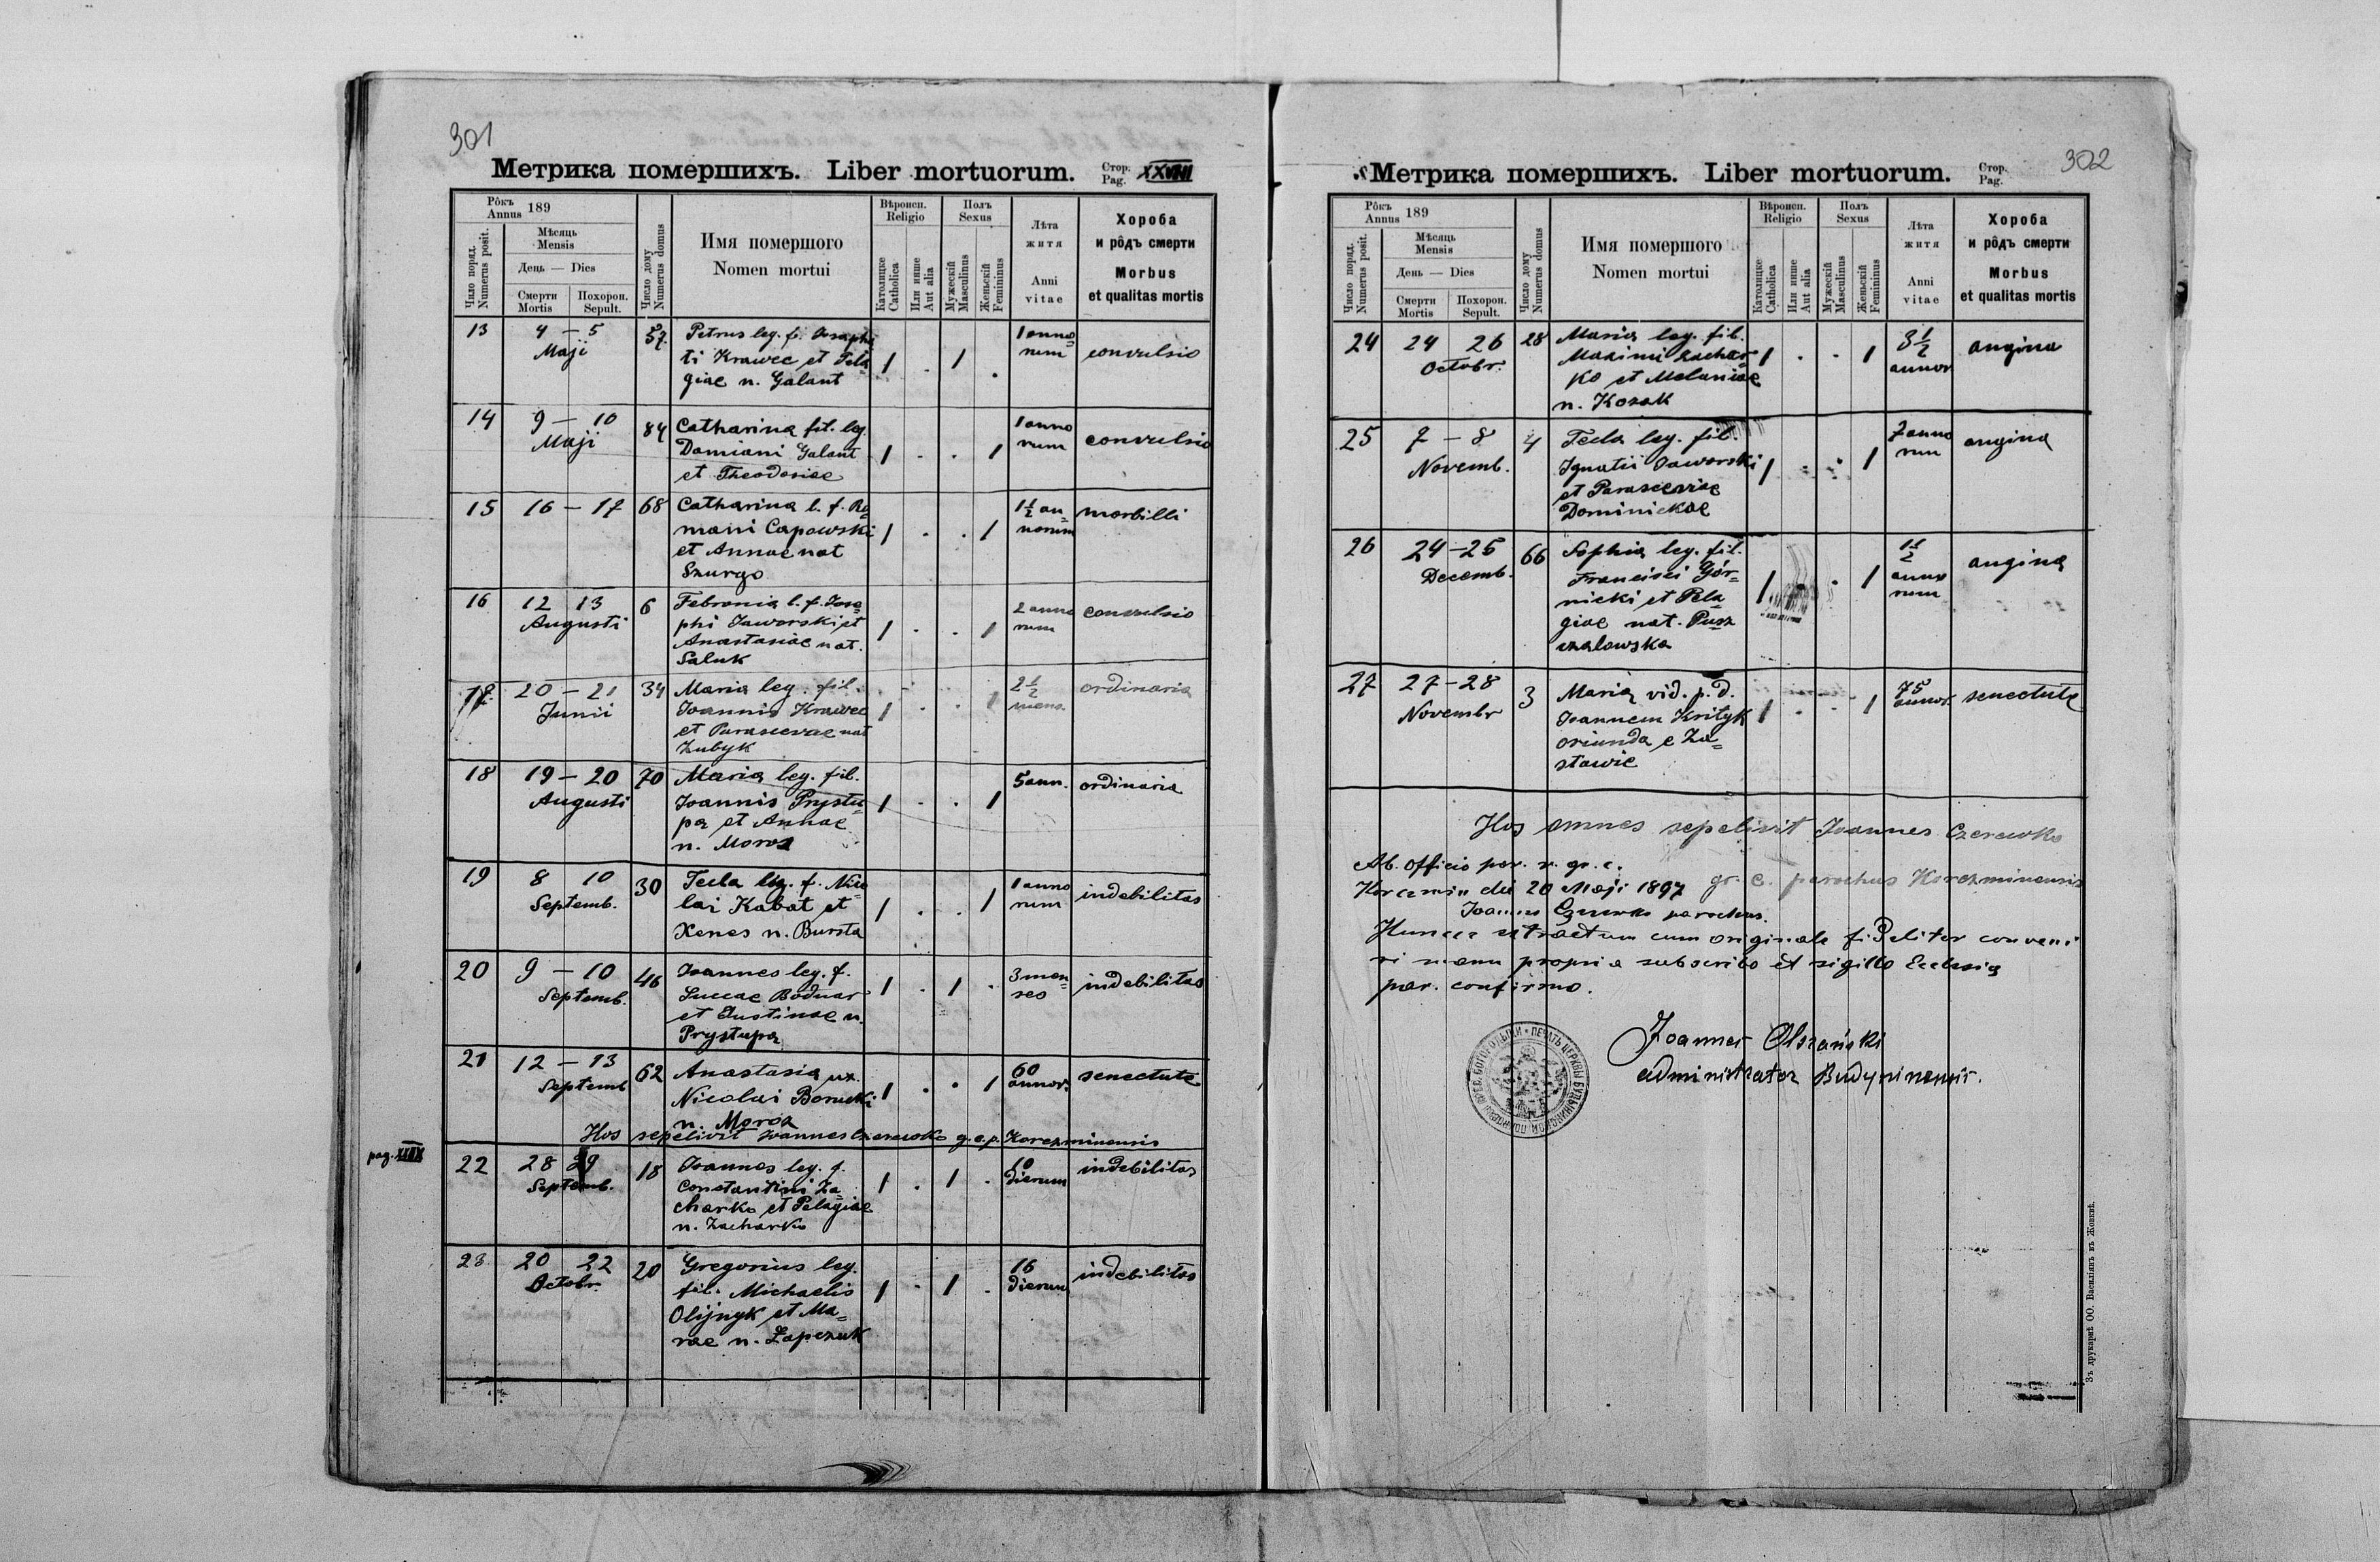 301
Метрика помершихъ. Liber mortuorum. Стор. Pag. XXVIII
Рôкъ Annus 189
Число поряд. Numerus posit.
Мѣсяць Mensis
День — Dies
Смерти Mortis
Похорон. Sepult.
Число дому Numerus domus
Имя помершого
Nomen mortui
Вѣроисп. Religio
Католицке Catholica
Или инше Aut alia
Полъ Sexus
Мужескій Masculinus
Женьскій Femininus
Лѣта житя
Anni vitae
Хороба и рôдъ смерти
Morbus et qualitas mortis
13 4 — 5 Maji 37 Petrus leg. f. Josapha
ti Krawec et Pela
giae n. Galant 1 . 1 . 1 anno=
rum convulsio
14 9 — 10 Maji 84 Catharina fil. leg.
Damiani Galant
et Theodosiae 1 . . 1 1 anno
rum convulsio
15 16 — 17 68 Catharina l. f. Ro=
mani Capowski
et Annae nat
Szurgo 1 . . 1 1 1/2 an=
norum morbilli
16 12 13 Augusti 6 Febronia l. f. Jose=
phi Jaworski et
Anastasiae nat.
Saluk 1 . . 1 2 anno
rum convulsio
17. 20 — 21 Junii 34 Maria leg. fil.
Joannis Krawec
et Parascevae nat
Zubyk 1 . . 1 2 1/2
mens. ordinaria
18 19 — 20 Augusti 70 Maria leg. fil.
Joannis Prystu=
pa et Annae
n. Moroz 1 . . 1 5 ann. ordinaria
19 8 10 Septemb. 30 Tecla leg. f. Nico=
lai Kabat et
Xenes n. Bursta 1 . . 1 1 anno
rum indebilitas
20 9 — 10 Septemb. 46 Joannes leg. f.
Lucae Bodnar
et Justinae n.
Prystupa 1 . 1 . 3 men=
ses indebilitas
21 12 — 13 Septemb 62 Anastasia ux.
Nicolai Borucki
n. Moroz 1 . . 1 60
annor. senectute
Hos sepelivit Joannes Czerewko g.c.p. Korczminensis
pag. XXIX
22 28 29 Septemb. 18 Joannes leg. f.
Constantini Za=
charko et Pelagiae
n. Zacharko 1 . 1 . 10
dierum indebilitas
23 20 22 Octobr. 20 Gregorius leg.
fil. Michaelis
Olijnyk et Ma=
riae n. Łapczuk 1 . 1 . 16
dierum indebilitas
302
Метрика помершихъ. Liber mortuorum. Стор. Pag.
Рôкъ Annus 189
Число поряд. Numerus posit.
Мѣсяць Mensis
День — Dies
Смерти Mortis
Похорон. Sepult.
Число дому Numerus domus
Имя помершого
Nomen mortui
Вѣроисп. Religio
Католицке Catholica
Или инше Aut alia
Полъ Sexus
Мужескій Masculinus
Женьскій Femininus
Лѣта житя
Anni vitae
Хороба и рôдъ смерти
Morbus et qualitas mortis
24 24 26 Octobr. 28 Maria leg. fil.
Maximi Zachar=
ko et Melaniae
n. Kozak 1 . . 1 3 1/2
annor angina
25 7 — 8 Novemb. 4 Tecla leg. fil.
Ignatii Jaworski
et Parasceviae
Dominickae 1 . . 1 7 anno
rum angina
26 24 — 25 Decemb. 66 Sophia leg. fil.
Francisci Gór=
nicki et Pela=
giae nat. Pusz
czalowska 1 . . 1 1 1/2
anno
rum angina
27 27 — 28 Novembr 3 Maria vid. p. d.
Joannem Krityk
oriunda e Za=
stawie 1 . . 1 75
annor. senectute
Hos omnes sepelivit Joannes Czerewko
gr. c. parochus Korczminensis
Ab officio par. r. gr. c.
Korczmin die 20 Maji 1897
Joannes Czerewko parochus.
Hunce extractum cum originale fideliter conveni
ri manu propria subscribo et sigillo Ecclesiae
par. confirmo.
Joannes Olszański
administrator Budyninensis.
Зъ друкарнѣ ОО. Василіянъ въ Жовквѣ.